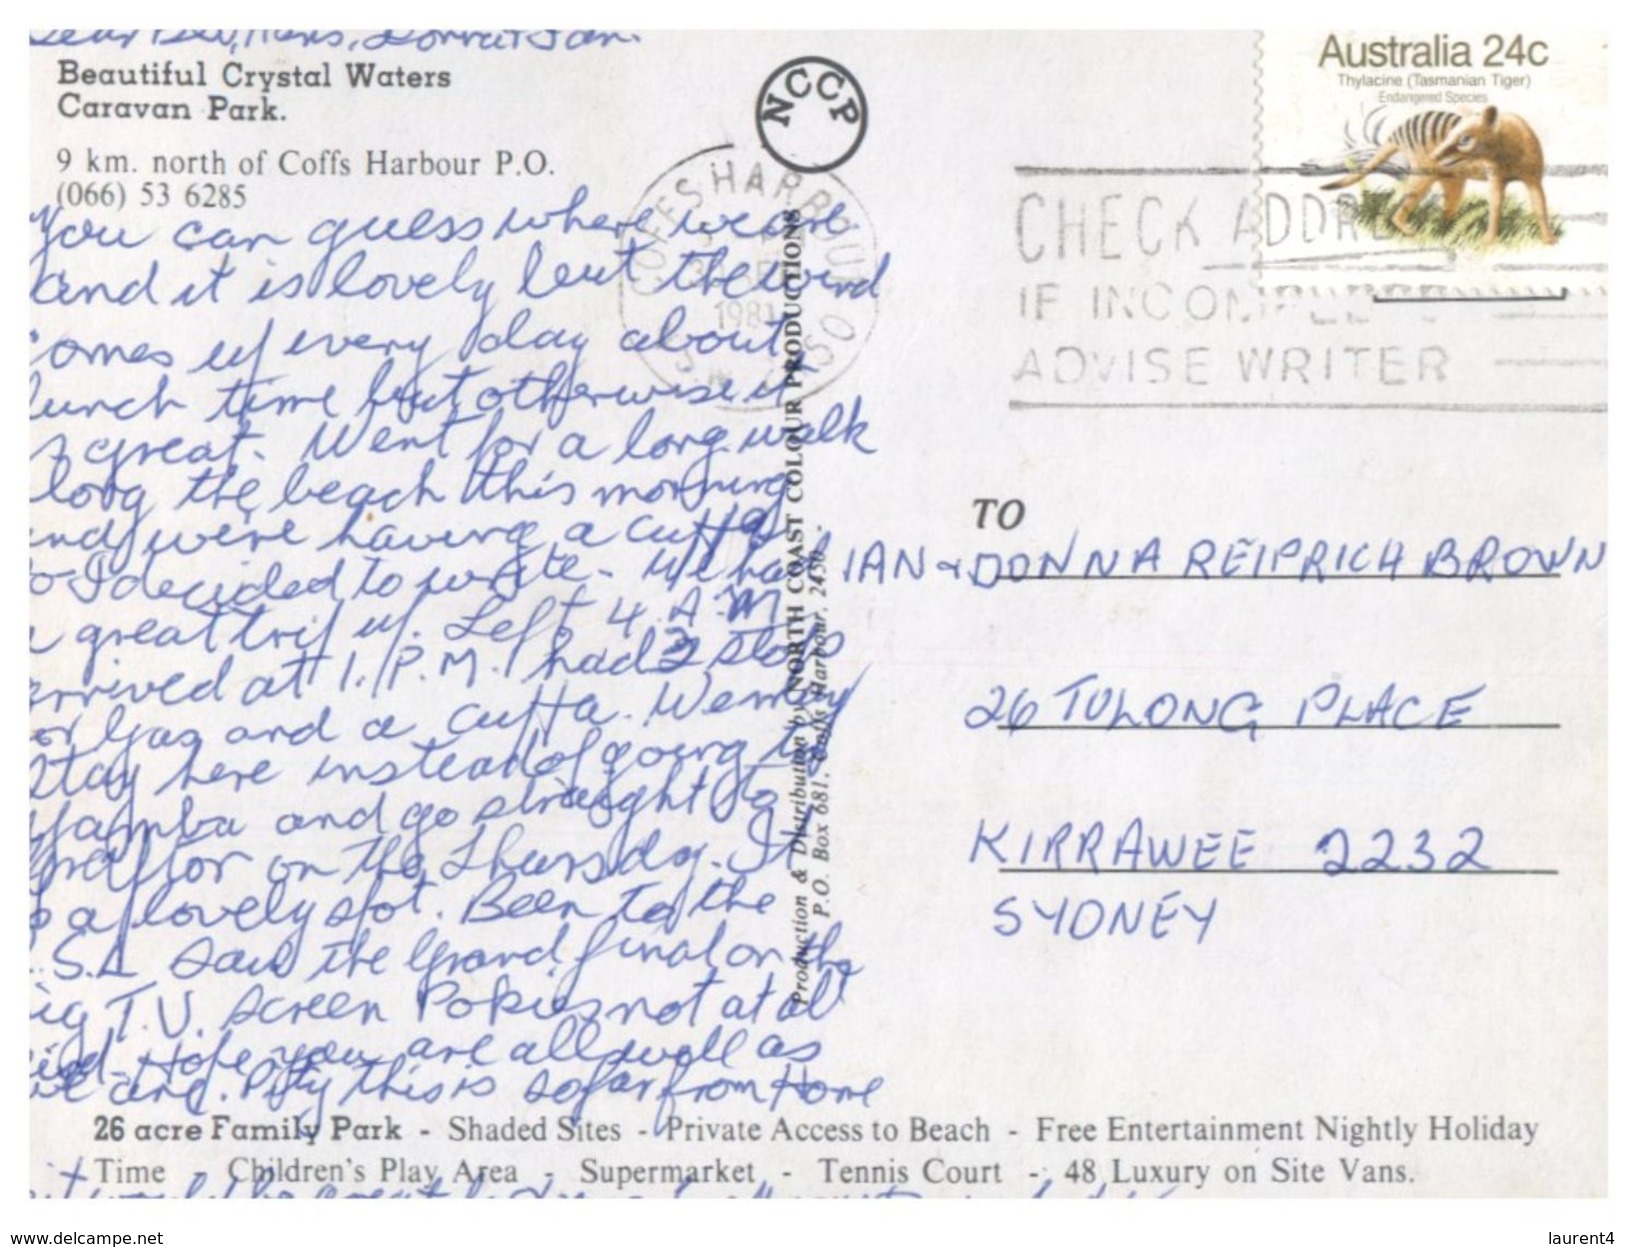 Beautiful Crystal Waters
Caravan Park.
9 km. north of Coffs Harbour P.O.
(066) 53 6285
You can guess where we are
and it is lovely but the wind
omes up every day about
lunch time but otherwise it
s great. Went for a long walk
long the beach this morning
and were having a cuppa
o I decided to write. We had
a great trip up. Left 4. A.M
arrived at 1. P.M. had 3 stops
or Gas and a cuppa. We may
stay here instead of going to
Yamba and go straight to
Grafton on the Thursday. It
is a lovely spot. Been to the
.S.L saw the Grand final on the
ig T.V. screen Pokies not at all
Hope you are all well as
we are. Pity this is so far from Home
26 acre Family Park - Shaded Sites - Private Access to Beach - Free Entertainment Nightly Holiday
Time - Children's Play Area - Supermarket - Tennis Court - 48 Luxury on Site Vans.
NCCP
COFFS HARBOUR
1981
Production & Distribution by NORTH COAST COLOUR PRODUCTIONS
P.O. Box 681, Coffs Harbour. 2450.
Australia 24c
Thylacine (Tasmanian Tiger)
Endangered Species
CHECK ADDRE
IF INCOMPLE
ADVISE WRITER
TO
IAN & DONNA REIPRICH BROWN
26 TULONG PLACE
KIRRAWEE 2232
SYDNEY
www.delcampe.net
laurent4